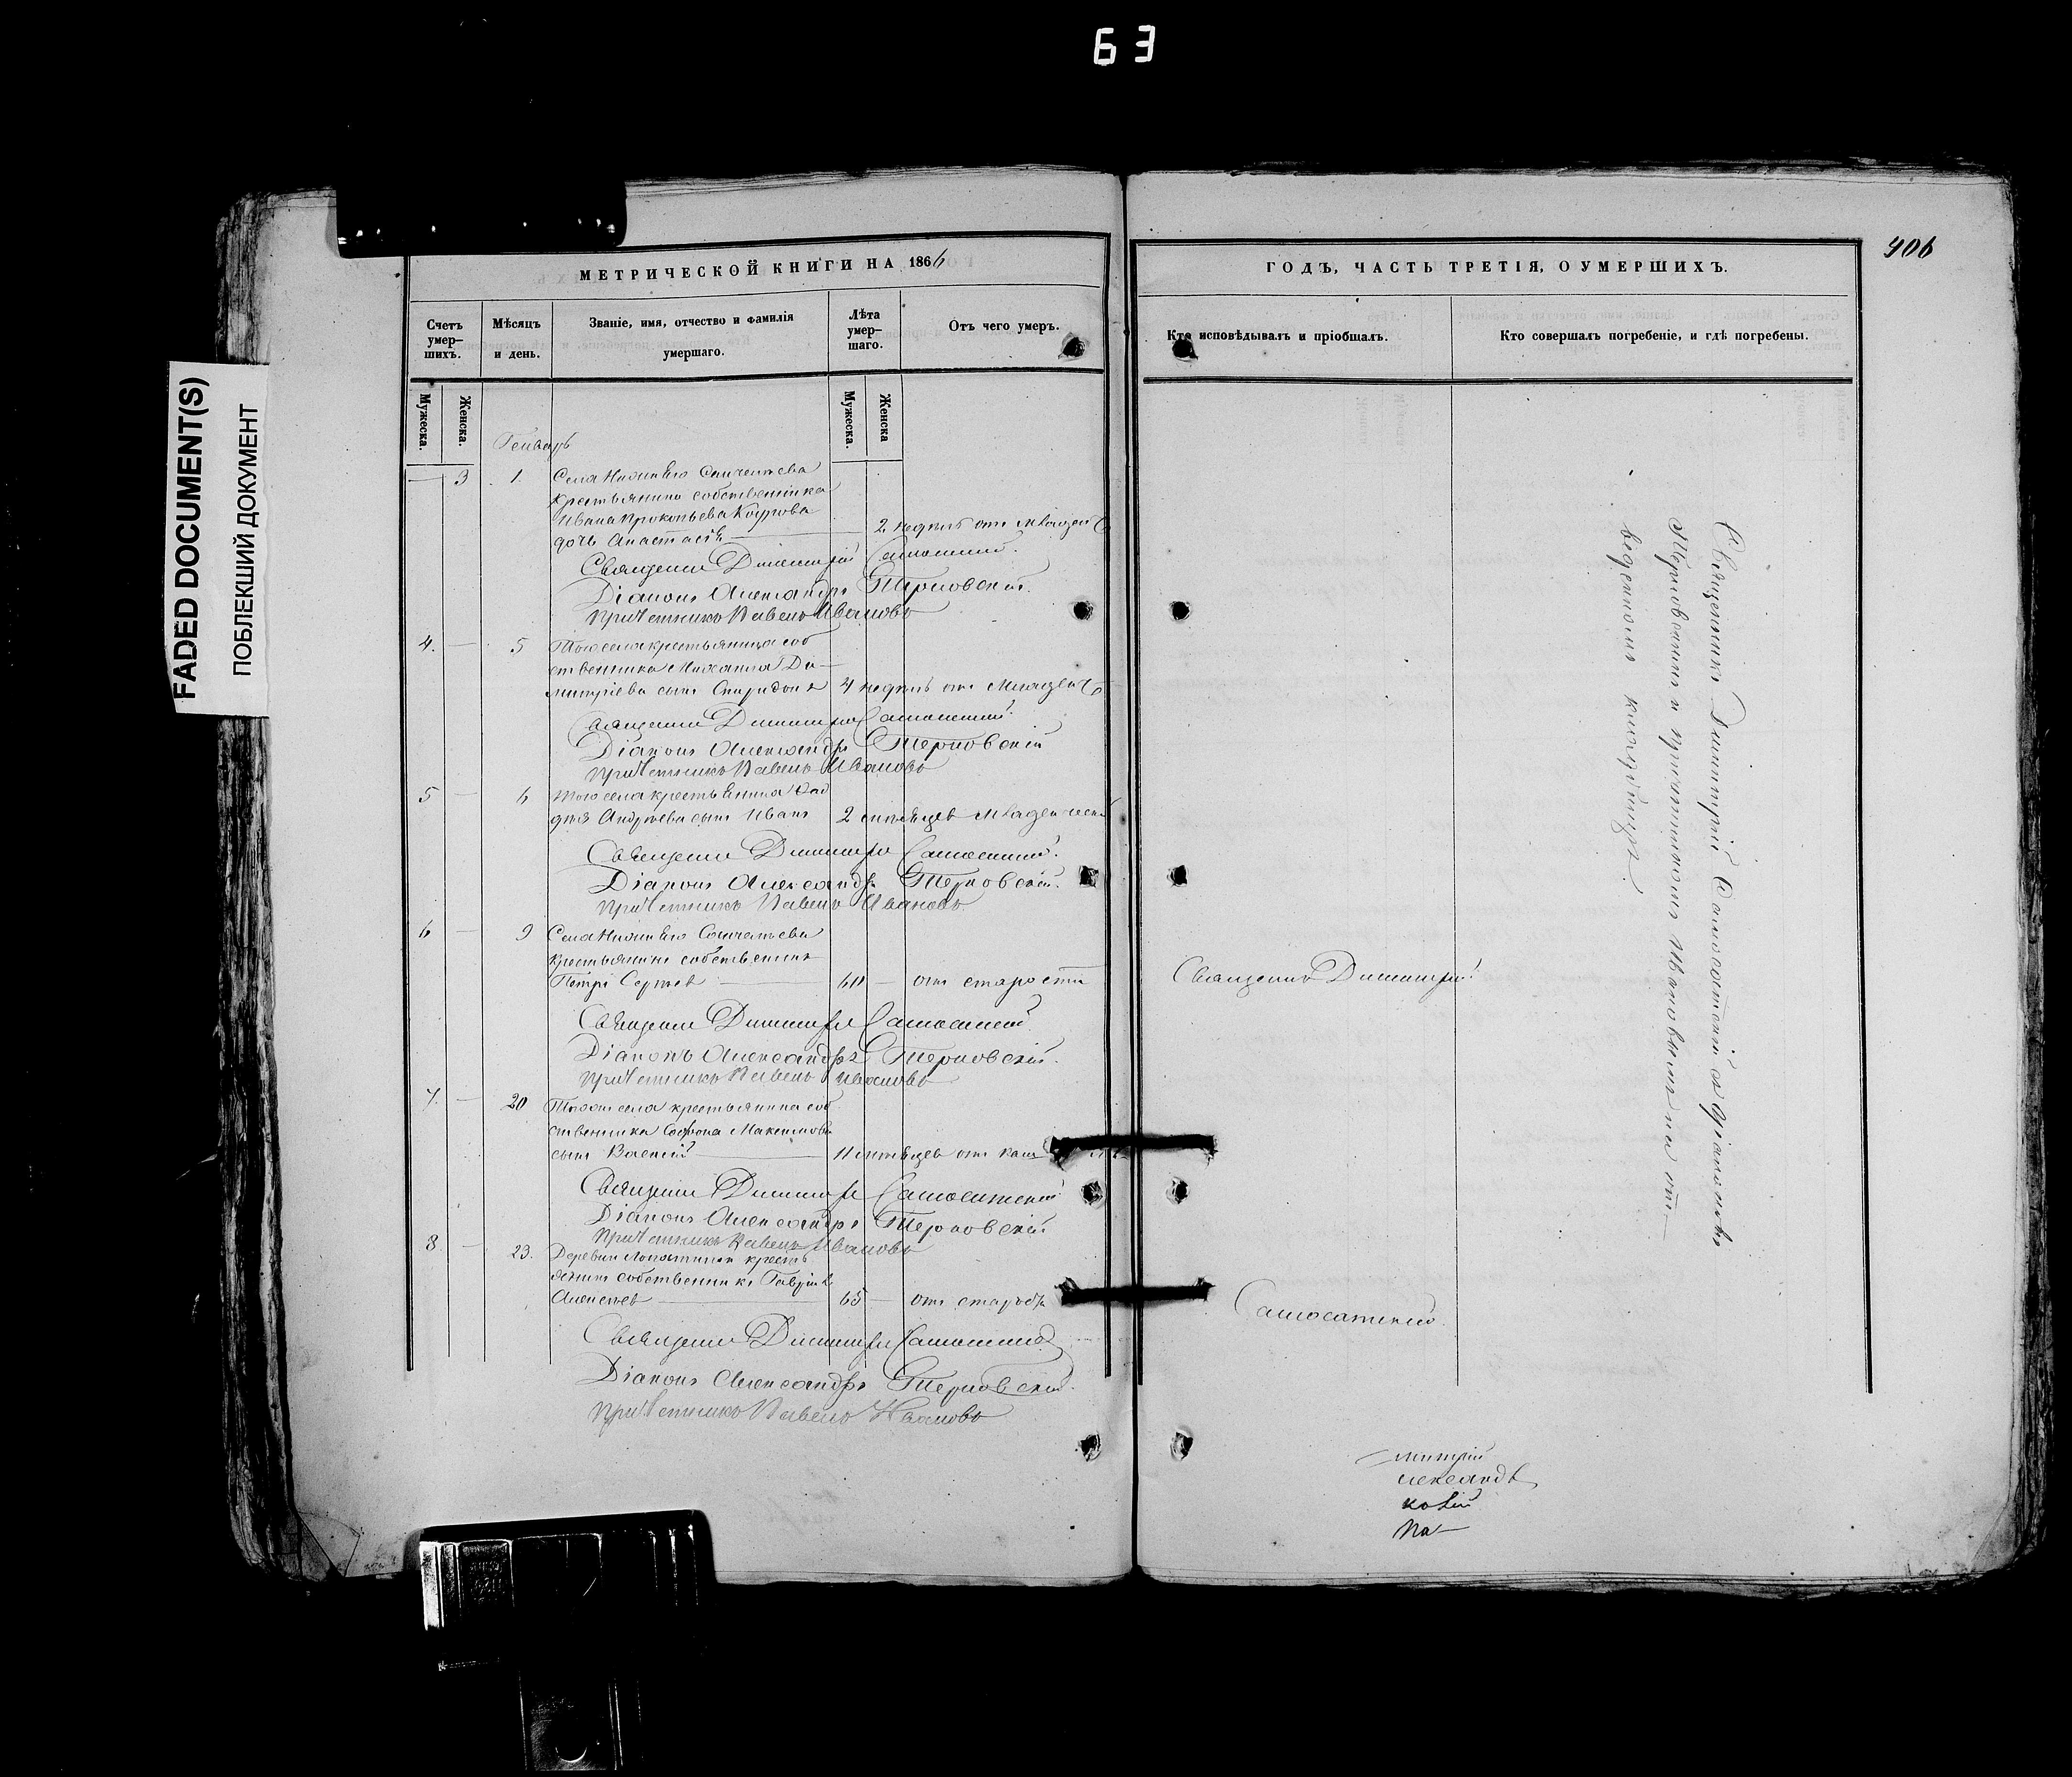 63
МЕТРИЧЕСКОЙ КНИГИ НА 1866
Счетъ умер-
шихъ.
Мѣсяцъ
и день.
Званіе, имя, отчество и фамилія
умершаго.
Лѣта
умер-
шаго.
Отъ чего умеръ.
Мужеска.
Женска.
Мужеска.
Женска
Генварь
3 1.
Села
крестьянина собственника
Ивана Прокопьева
дочь Анастасія 2 недѣль отъ младенч
Священникъ Димитрій Самосатскій.
Діаконъ Александръ Терновскій.
Причетникъ Павелъ Ивановъ
4. 5 Тогоже села крестьянина соб
ственника Михаила Ди-
митріева сынъ Спиридонъ 4 недѣль отъ младенч
Священникъ Димитрій Самосатскій.
Діаконъ Александръ Терновскій
Причетникъ Павелъ Ивановъ
5 6 Тогоже села крестьянина
Андреева сынъ Иванъ 2 мѣсяцев младенческ
Священникъ Димитрій Самосатскій.
Діаконъ Александръ Терновскій.
Причетникъ Павелъ Ивановъ.
6 9 Села
крестьянинъ собственникъ
Петръ Сергѣев 60 отъ старости
Священникъ Димитрій Самосатскій.
Діаконъ Александръ Терновскій.
Причетникъ Павелъ Ивановъ
7. 20 Тогоже села крестьянина соб
ственника Софрона Максимова
сынъ Василій 11 мѣсяцев отъ каш
Священникъ Димитрій Самосатскій
Діаконъ Александръ Терновскій
Причетникъ Павелъ Ивановъ
8 23. Деревни кресть
янинъ собственникъ Гаврилъ
Алексѣев 65 отъ старос
Священникъ Димитрій Самосатскій
Діаконъ Александръ Терновскій.
Причетникъ Павелъ Ивановъ
ГОДЪ, ЧАСТЬ ТРЕТІЯ, О УМЕРШИХЪ.
406
Кто исповѣдывалъ и пріобщалъ.
Кто совершалъ погребеніе, и гдѣ погребены.
Священникъ Димитрій
Самосатскій.
Священникъ Димитрій Самосатскій с діакономъ
Терновскимъ и причетникомъ Ивановымъ на отве-
веденномъ кладбищѣ
митрій
лександ
ковій
Па-
FADED DOCUMENT(S)
ПОБЛЕКШИЙ ДОКУМЕНТ